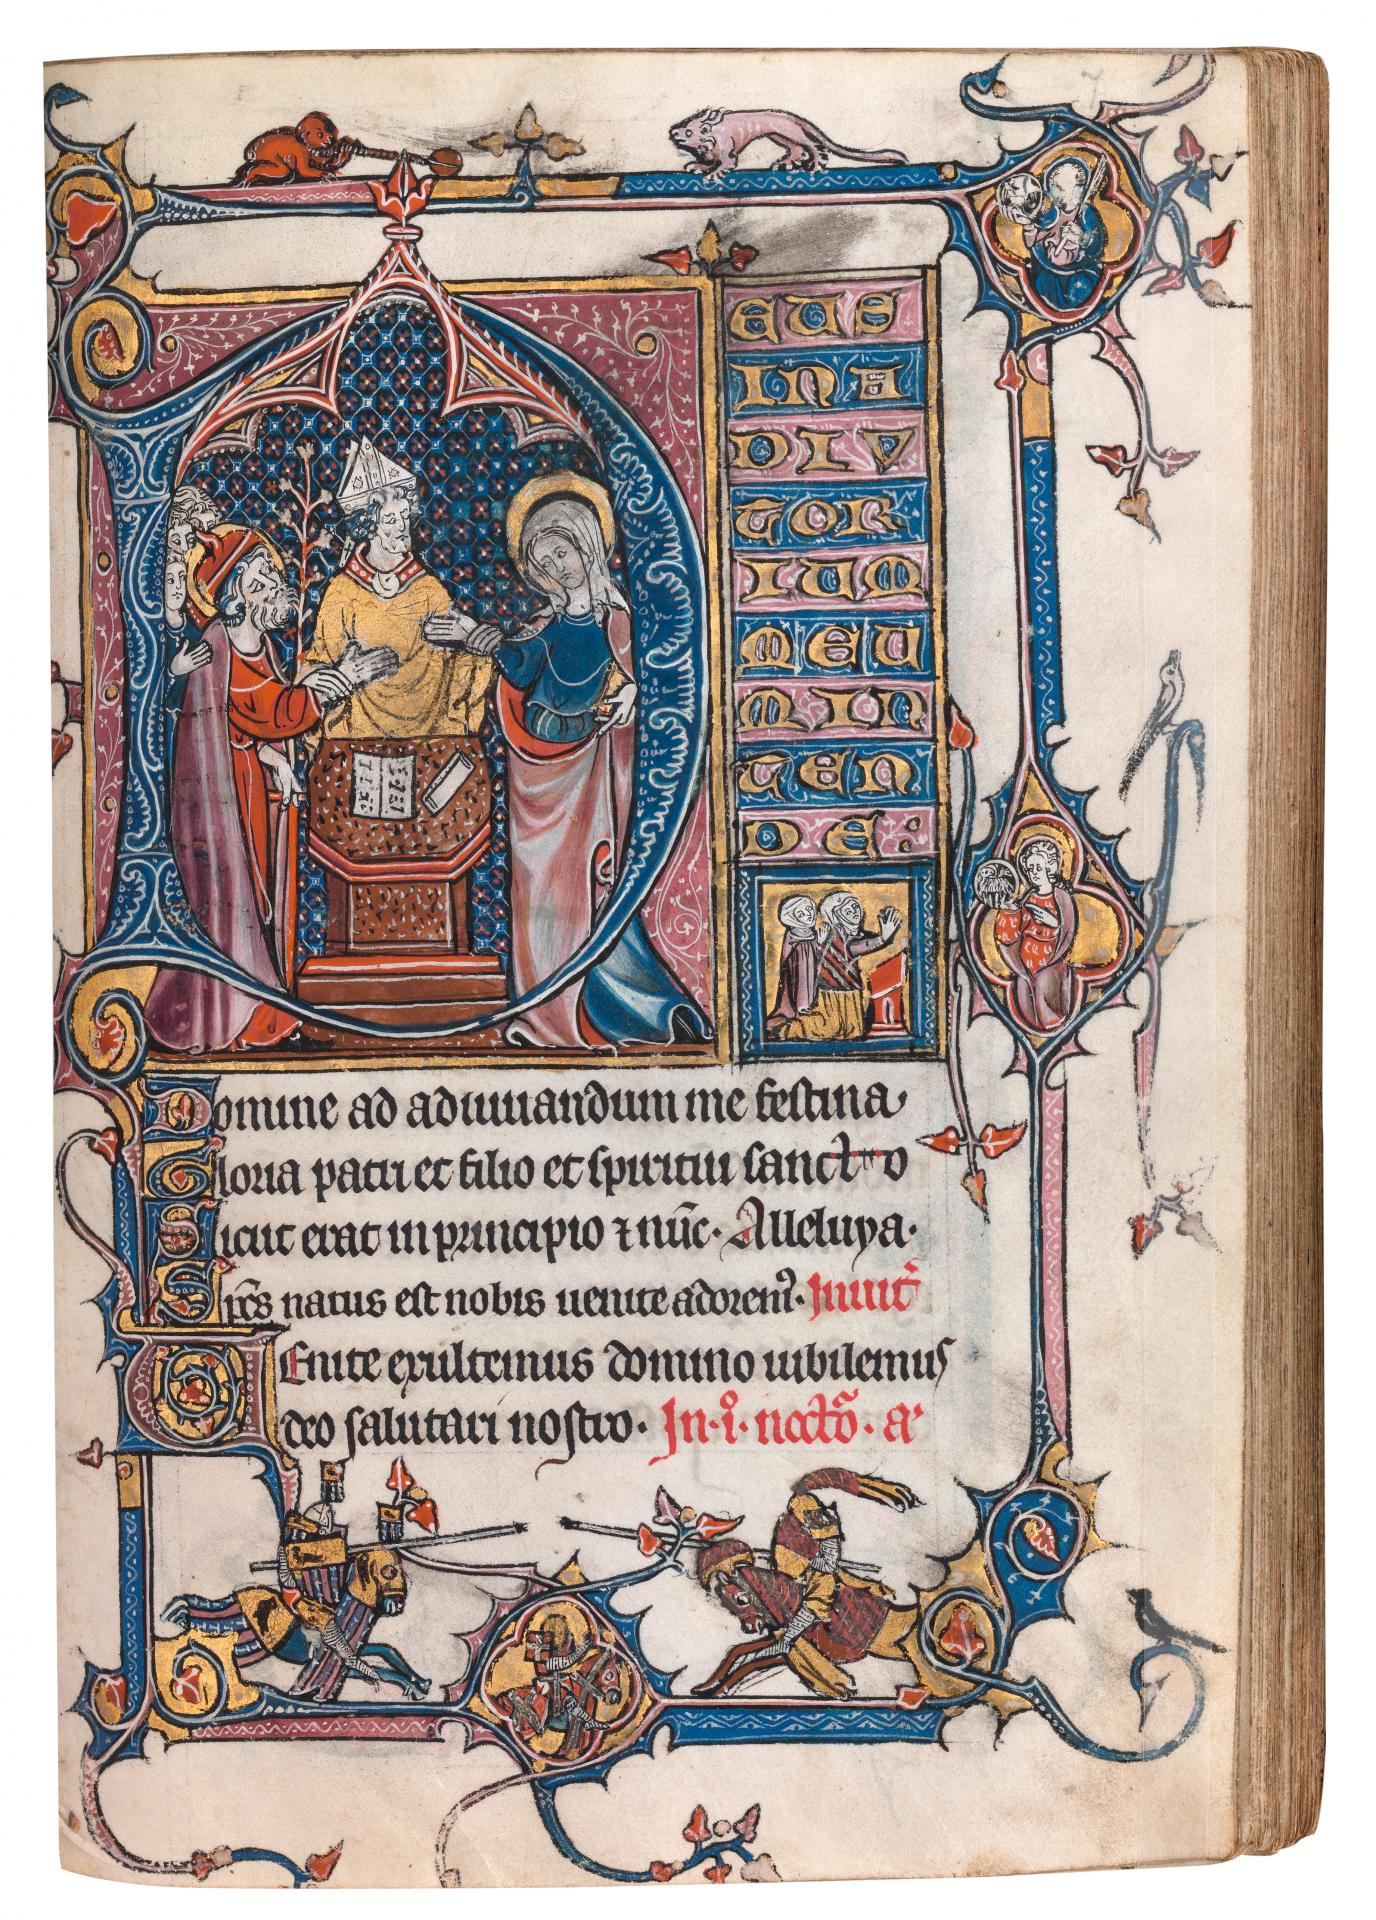 D
EUS
IN A
DIV
TOR
IUM
MEU
M IN
TEN
DE:
Domine ad adiuuandum me festina
Gloria patri et filio et spiritui sancto
Sicut erat in principio ⁊ nūc. Alleluya.
Xp̄s natus est nobis uenite adorem⁹. Inuit̄
Venite exultemus domino iubilemus
deo salutari nostro. In .i⁰. nocto̅. a᷒